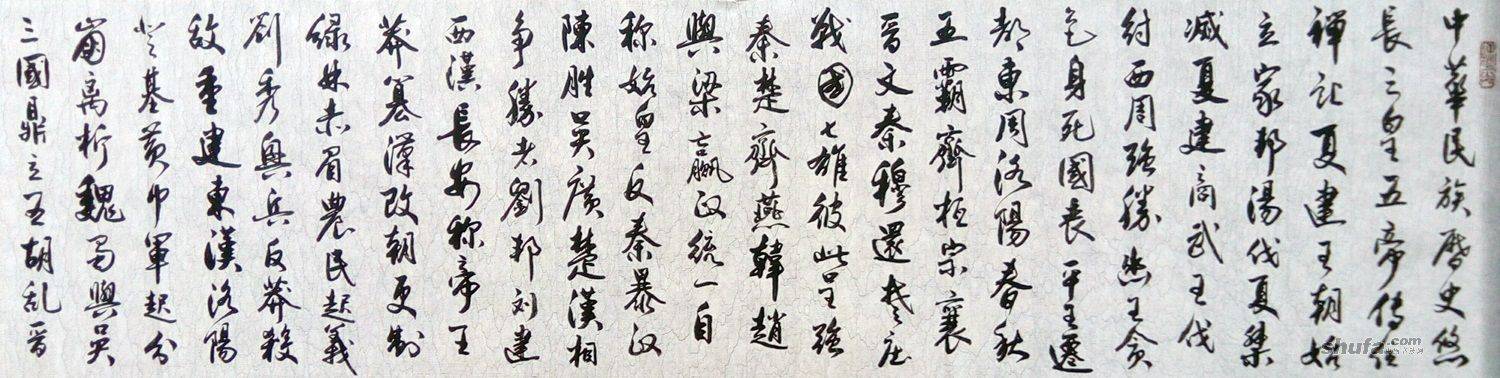 中華民族曆史悠
長三皇五帝傳位
禪让夏建王朝始
立家邦湯伐夏桀
滅夏建商武王伐
纣西周强勝幽王贪
色身死國丧平王遷
都東周洛陽春秋
五霸齊桓宋襄
晋文秦穆還楚庄
戰國七雄彼此呈强
秦楚齊燕韓趙
與梁嬴政統一自
称始皇反秦暴政
陳胜吴廣楚漢相
争勝者劉邦刘建
西漢長安称帝王
莽篡漢改朝更制
绿林赤眉農民起義
劉秀興兵反莽殺
敌重建東漢洛陽
登基黄巾軍起分
崩离析魏蜀與吴
三國鼎立五胡乱晋
shufa.com